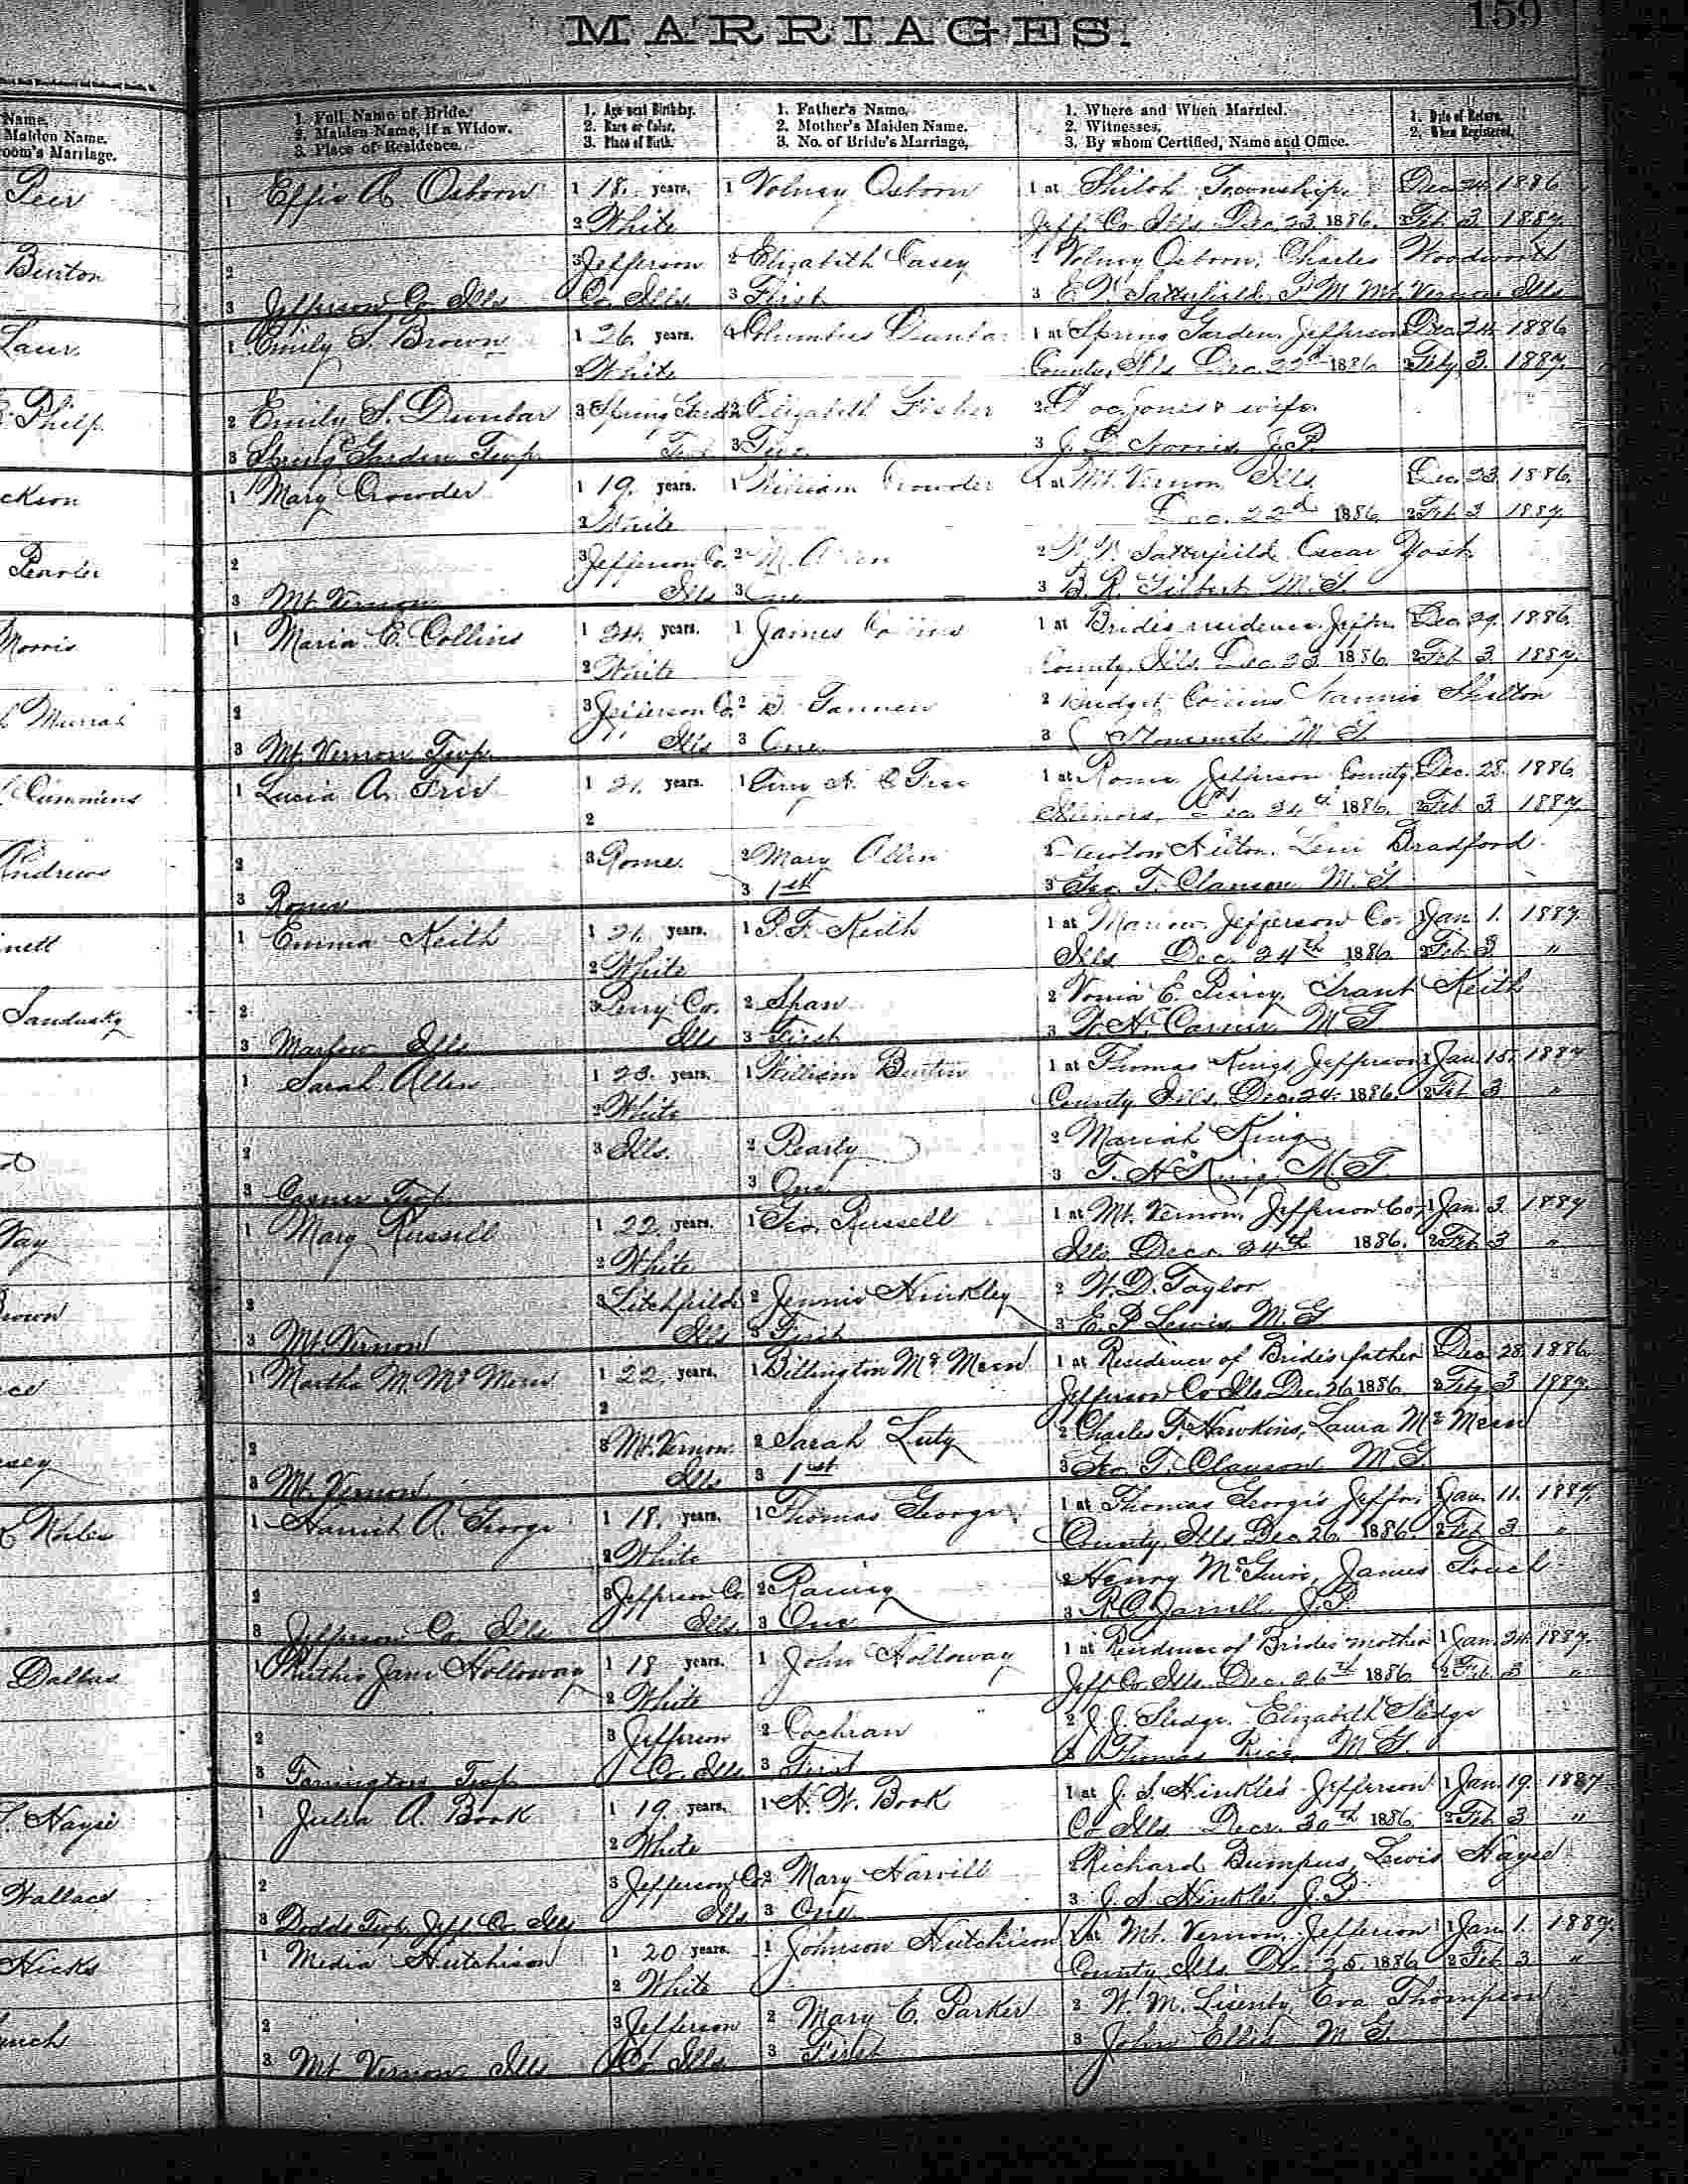 MARRIAGES.
159
Name,
Maiden Name.
oom's Marriage.
1. Full Name of Bride.
2. Maiden Name, if a Widow.
3. Place of Residence.
1. Age next Birthday.
2. Race or Color.
3. Place of Birth.
1. Father's Name.
2. Mother's Maiden Name.
3. No. of Bride's Marriage.
1. Where and When Married.
2. Witnesses.
3. By whom Certified, Name and Office.
1. Date of Return.
2. When Registered.
Peer
1 Effie A Osborn 1 18. years. 1 Volney Osborn 1 at Shiloh Township Dec 24 1886
2 White Jeff. Co Ills Dec 23 1886. 2 Feb 3. 1887.
Burton
2 3 Jefferson 2 Elizabeth Casey 2 Volney Osborn, Charles Woodworth
3 Jefferson Co Ills Co. Ills 3 First 3 Satterfield, Mt Vernon Ills
Laur
1 Emily S. Brown 1 26 years. 1 Columbus Dunbar 1 at Spring Garden, Jefferson Dec 24 1886
2 White County, Ills Dec. 22d 1886 2 Feby 3. 1887.
Philp
2 Emily S. Dunbar 3 Spring Garden 2 Elizabeth Fisher 2 Jones & wife
3 Spring Garden Twp. 3 Two 3 J. Norris, J.P.
ckson
1 Mary Crowder 1 19. years. 1 William Crowder 1 at Mt. Vernon Ills Dec. 23. 1886.
2 White Dec. 22d 1886. 2 Feb 3 1887
2 3 Jefferson Co. 2 M. 2 Satterfield Oscar Yost
3 Mt. Vernon Ills 3 One 3 B. R. Gilbert M.G.
Morris
1 Maria E. Collins 1 24. years. 1 James Collins 1 at Brides residence, Jeffn Dec. 29. 1886.
2 White County, Ills. Dec. 23. 1886. 2 Feb 3. 1887.
Murrah
2 3 Jefferson Co. 2 2 Bridget Collins Shelton
3 Mt. Vernon Twp. Ills 3 One 3 M. G.
Cummins
1 Lucia A. 1 21. years. 1 1 at Rome Jefferson County, Dec. 28. 1886
2 Illinois, 1886. 2 Feb 3 1887.
Andrews
2 3 Rome. 2 Mary Allen 2 Newton Hilton. Levi Bradford
3 Rome 3 1st 3 Geo. T. Clauson M. G.
nett
1 Emma Keith 1 21. years. 1 P. F. Keith 1 at Marlow, Jefferson Co. 1 Jan 1. 1887.
2 White Ills Dec. 24th 1886. 2 Feb. 3 "
Sandusky
2 3 Perry Co. 2 Span 2 Vonia E. Piercy, Grant Keith
3 Marlow Ills Ills 3 First 3 M G
1 Sarah Allen 1 23. years. 1 William Burtin 1 at Thomas Kings, Jefferson 1 Jan. 1887
2 White County, Ills. Dec. 24. 1886. 2 Feb 3 "
2 3 Ills. 2 Pearly 2 Mariah King
3 Casner Twp. 3 One 3 T. H King, M. G.
Way
1 Mary Russell 1 22. years. 1 Geo. Russell 1 at Mt. Vernon, Jefferson Co, 1 Jan. 3. 1887
2 White Ills. Decr. 24th 1886. 2 Feb 3 "
2 3 Litchfield 2 Jennie Hinkley 2 W. D. Taylor
3 Mt. Vernon Ills 3 First 3 E. P Lewis, M. G
1 Martha M. Mc Meen 1 22. years. 1 Billington Mc Meen 1 at Residence of Brides father 1 Dec 28. 1886
2 Jefferson Co Ills Dec. 26 1886. 2 Feby 3. 1887.
2 3 Mt. Vernon. 2 Sarah Luty 2 Charles T. Hawkins, Laura Mc Meen
3 Mt. Vernon Ills 3 1st 3 Geo. T. Clauson M G.
1 Harriet A. George 1 18. years. 1 Thomas George 1 at Thomas George's Jeffn. 1 Jan. 11. 1887.
2 White County Ills Dec 26 1886 2 Feb 3 "
2 3 Jefferson Co 2 Rainey 2 Henry McGuire, James
3 Jefferson Co. Ills. Ills. 3 One 3 R.C. Jarrell J.P.
Dallas
1 Ruthie Jane Holloway 1 18 years. 1 John Holloway 1 at Residence of Brides mother 1 Jan. 24. 1887.
2 White Jeff Co Ills. Dec. 26th 1886 2 Feb 3 "
2 3 Jefferson 2 Cochran 2 J. J. Sledge. Elizabeth Sledge
3 Farrington Twp Co. Ills 3 First 3 Thomas Rice M G.
Hayse
1 Julia A. Book 1 19 years. 1 H. W. Book 1 at J. S. Hinkle's Jefferson 1 Jan. 19. 1887
2 White Co Ills Decr. 30th 1886. 2 Feb 3 "
Wallace
2 3 Jefferson Co 2 Mary Harvill 2 Richard Bumpus, Lewis Hayse
3 Dodds Twp. Jeff. Co. Ills Ills 3 One 3 J. S. Hinkle J. P
Hicks
1 Media Hutchison 1 20 years. 1 Johnson Hutchison 1 at Mt. Vernon, Jefferson 1 Jan. 1. 1887.
2 White County Ills Dec. 25. 1886 2 Feb 3. "
2 3 Jefferson 2 Mary E. Parker 2 W. M. Lisenby, Eva Thompson
3 Mt Vernon Ills Co Ills 3 First 3 John Ellis M G.